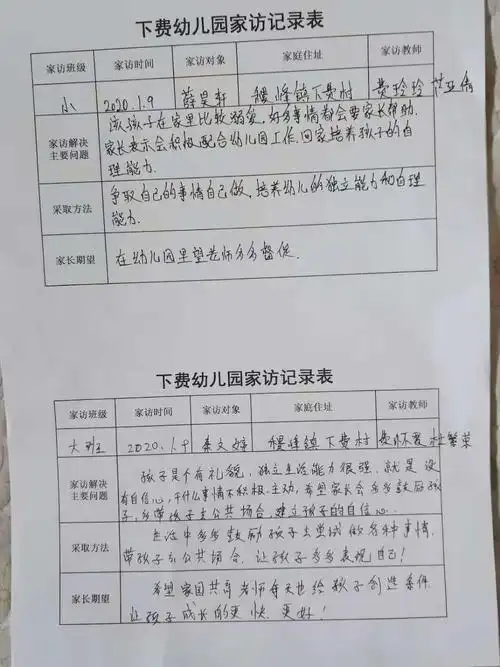 下费幼儿园家访记录表
家访班级 家访时间 家访对象 家庭住址 家访教师
小 2020.1.9 薛昊轩 穆峰镇下费村 费玲玲
该孩子在家里比较溺爱,好多事情都会要家长帮助.
家访解决主要问题 家长表示会积极配合幼儿园工作,回家培养孩子的自
理能力.
采取方法 争取自己的事情自己做,培养幼儿的独立能力和自理
能力.
家长期望 在幼儿园里望老师多多督促.
下费幼儿园家访记录表
家访班级 家访时间 家访对象 家庭住址 家访教师
大班 2020.1.9 秦文婷 穆峰镇下费村 费怀爱 杜繁荣
孩子是个有礼貌,独立生活能力很强,就是没
家访解决主要问题 有自信心,干什么事情不积极.主动,希望家长会多多鼓励孩
子,多带孩子去公共场合,建立孩子的自信心.
采取方法 生活中多多鼓励孩子去尝试做各种事情.
带孩子去公共场合,让孩子多多表现自己!
家长期望 希望家园共育老师每天也给孩子创造条件
让孩子成长的更快.更好!